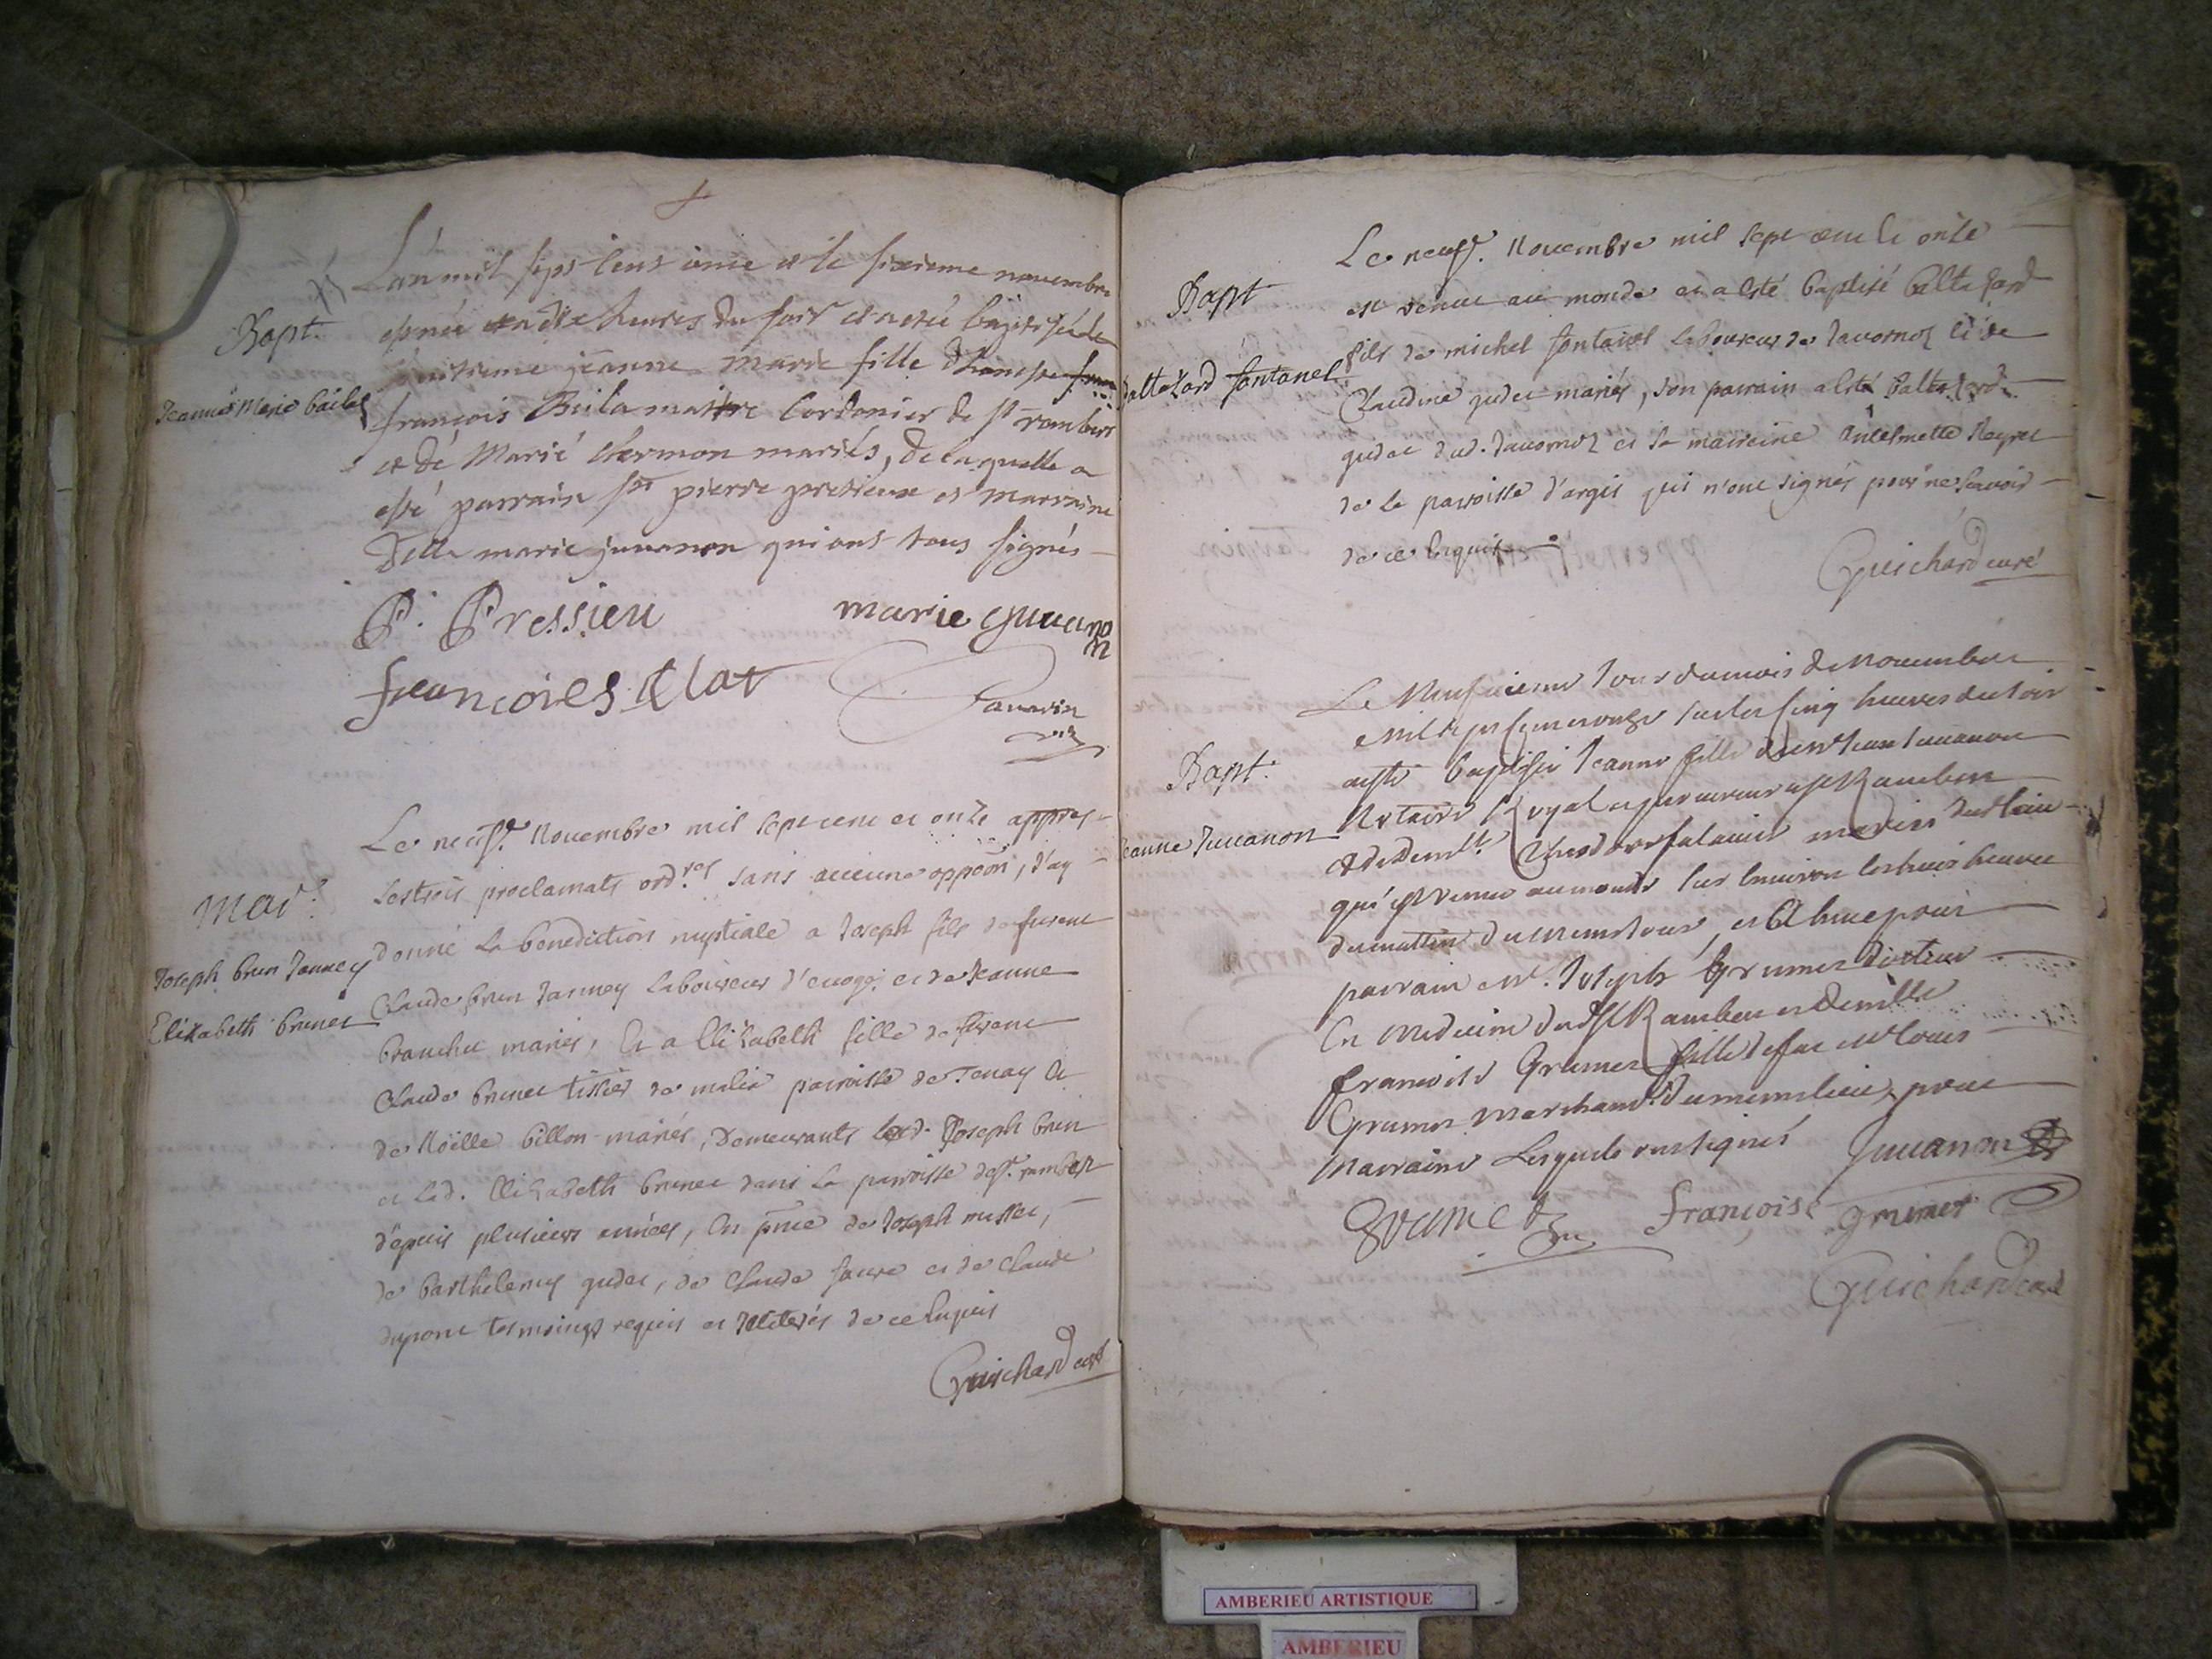 Bapt.
Jeanne Marie Baila
L'an mil sept cens onze et le sixieme novembre
est née a dix heures du soir et a eté baptisée le
huitieme jeanne marie fille d'honeste
françois Baila maitre Cordonier de st rambert
et de Marie Chermon mariés, de laquelle a
esté parrain sr pierre pressieux et marraine
Delle marie juvanon qui ont tous signés
P. Pressieu marie Guuanon
françoies
Mar.
Joseph brun Janney
Elizabeth brunet
Le neufe. Novembre mil sept cent et onze appres
les trois proclamats ordres sans aucune oppoõn, j'ay
donné la benediction nuptiale a Joseph fils de furent
Claude brun Janney laboureur d'euoge et de Jeanne
branche mariés, Et a Elizabeth fille de furent
Claude brunet tissier de malix parroisse de Tenay Et
de Noëlle billon mariés, Demeurants led. Joseph brun
et lad. Elizabeth brunet dans la parroisse de st. rambert
depuis plusieurs années, En pñce de Joseph mussel,
de barthelemy gudet, de Claude faure et de Claude
dupont tesmoings requis et Illiterés de ce Enquis
Guichard curé
Bapt
Baltazard fontanel
Le neufe. Novembre mil sept cent et onze
est venue au monde et a esté baptisé baltazard
fils de michel fontanel laboureur de Javornoz et de
Claudine gudet mariés, son parrain a esté baltazard
gudet dud. Javornoz et sa marreine Antelmette Reyret
de la parroisse d'argis qui n'ont signés pour ne scavoir
de ce Enquis
Guichard curé
Bapt.
Jeanne Juuanon
Le Neufuieme Jour du mois de Nouembre
mil sept cent onze sur les cinq heures du soir
a esté baptisée Jeanne fille de Mr Jean Juuanon
Notaire Royal et procureur a st Rambert
et de Demlle mariés dud lieu
qui est venue au monde sur lenuiron les huit heures
du mattin du mesme Jour, et a heu pour
parrain Mr. Joseph Grumet Docteur
En Medecine dud st Rambert et Demlle
francoise Grumet fille de feu Mr Louis
Grumet Marchand du mesme lieu, pour
Marraine Lesquels ont signés Juuanon
Grumet françoise grumet
Guichard curé
AMBERIEU ARTISTIQUE
AMBERIEU